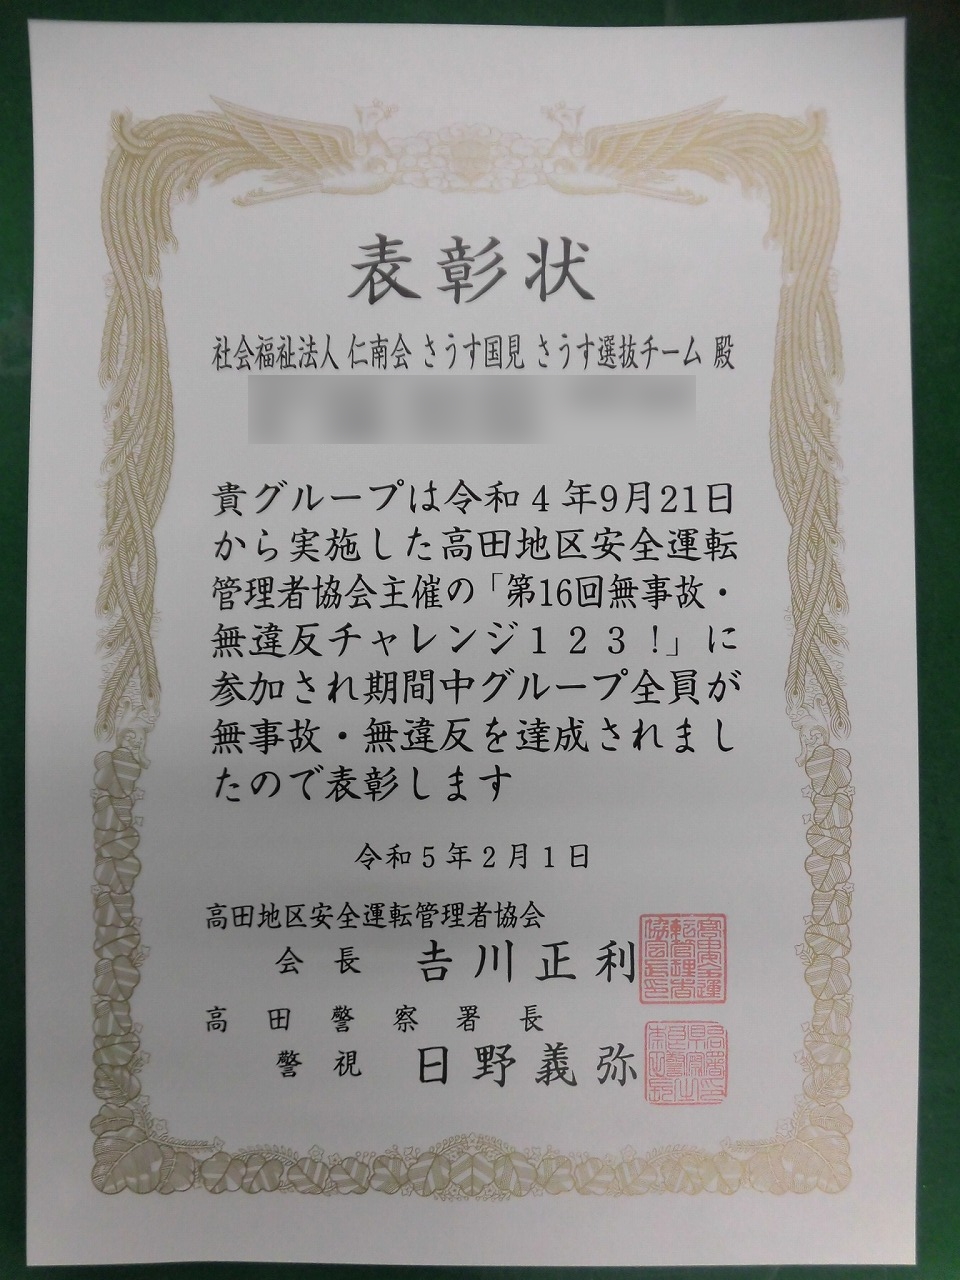 表彰状
社会福祉法人 仁南会 さうす国見 さうす選抜チーム 殿
貴グループは令和4年9月21日
から実施した高田地区安全運転
管理者協会主催の「第16回無事故・
無違反チャレンジ123!」に
参加され期間中グループ全員が
無事故・無違反を達成されまし
たので表彰します
令和5年2月1日
高田地区安全運転管理者協会
会長 𠮷川正利
高田警察署長
警視 日野義弥